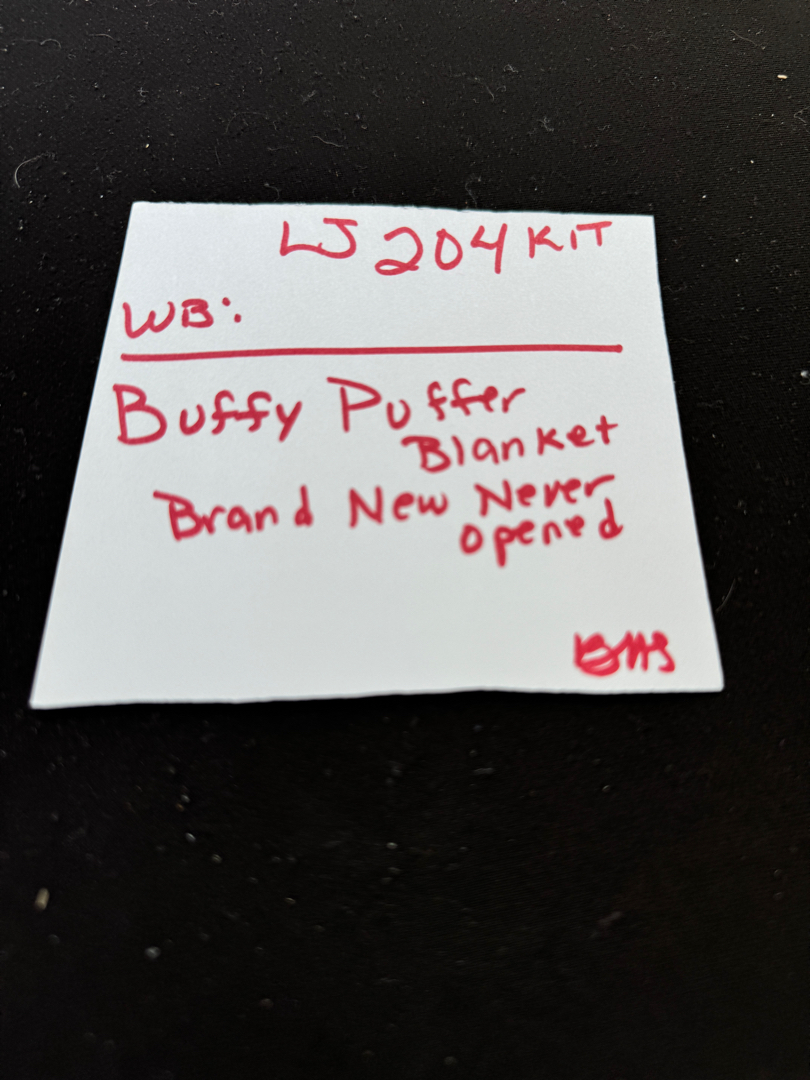 LJ 204 KIT
WB:
Buffy Puffer
Blanket
Brand New Never
opened